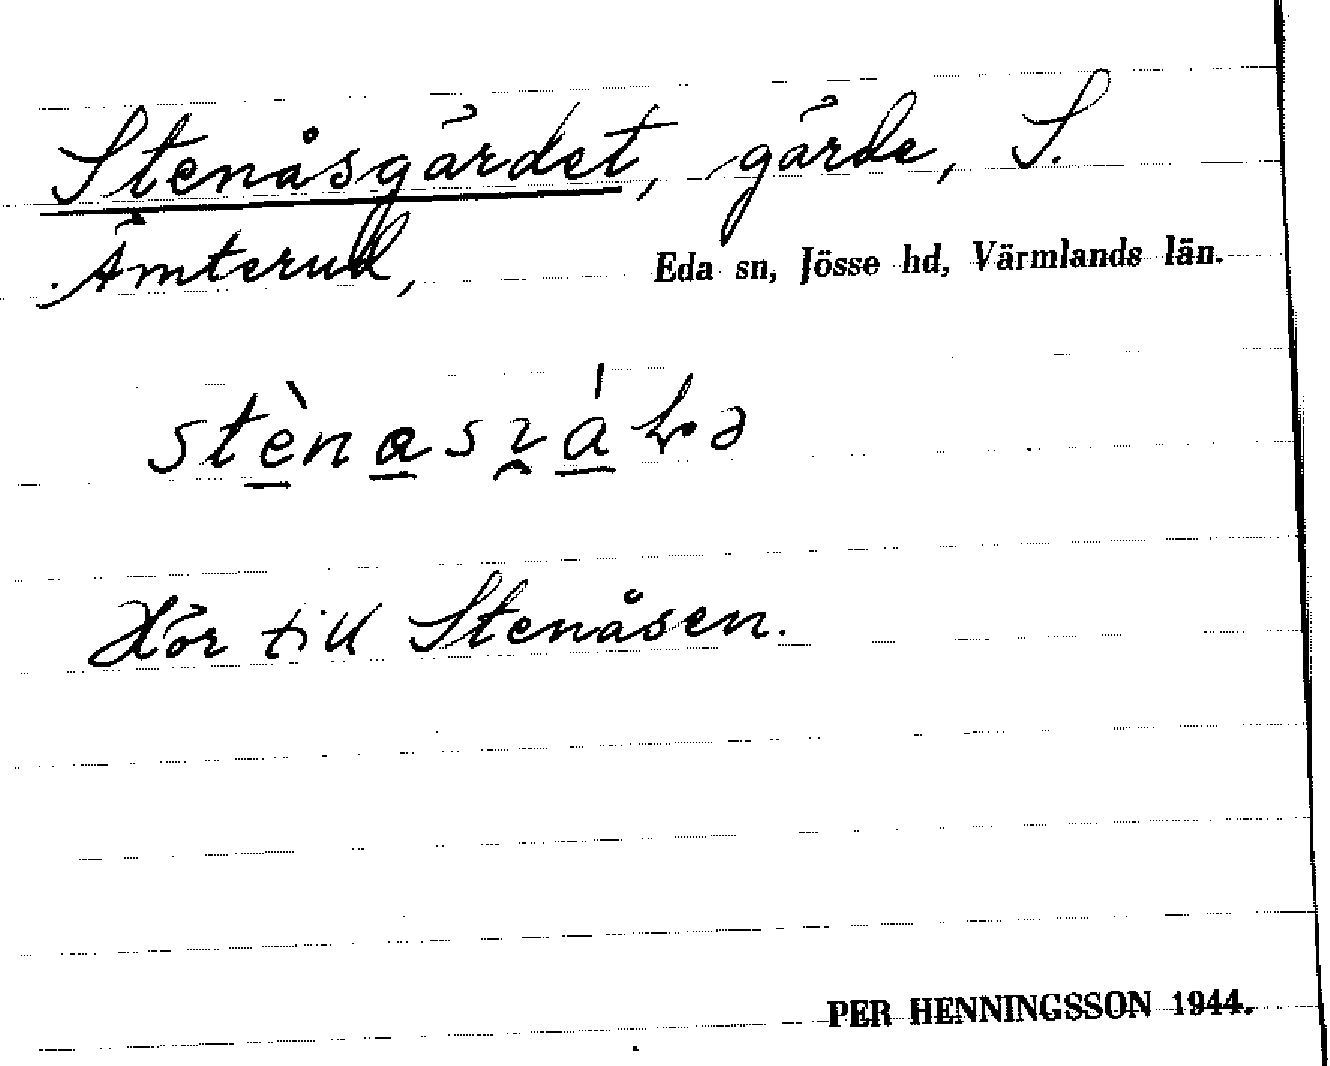 Stenåsgärdet, gärde, S.
Ämterud, Eda sn, Jösse hd, Värmlands län.
Hör till Stenåsen.
PER HENNINGSSON 1944.